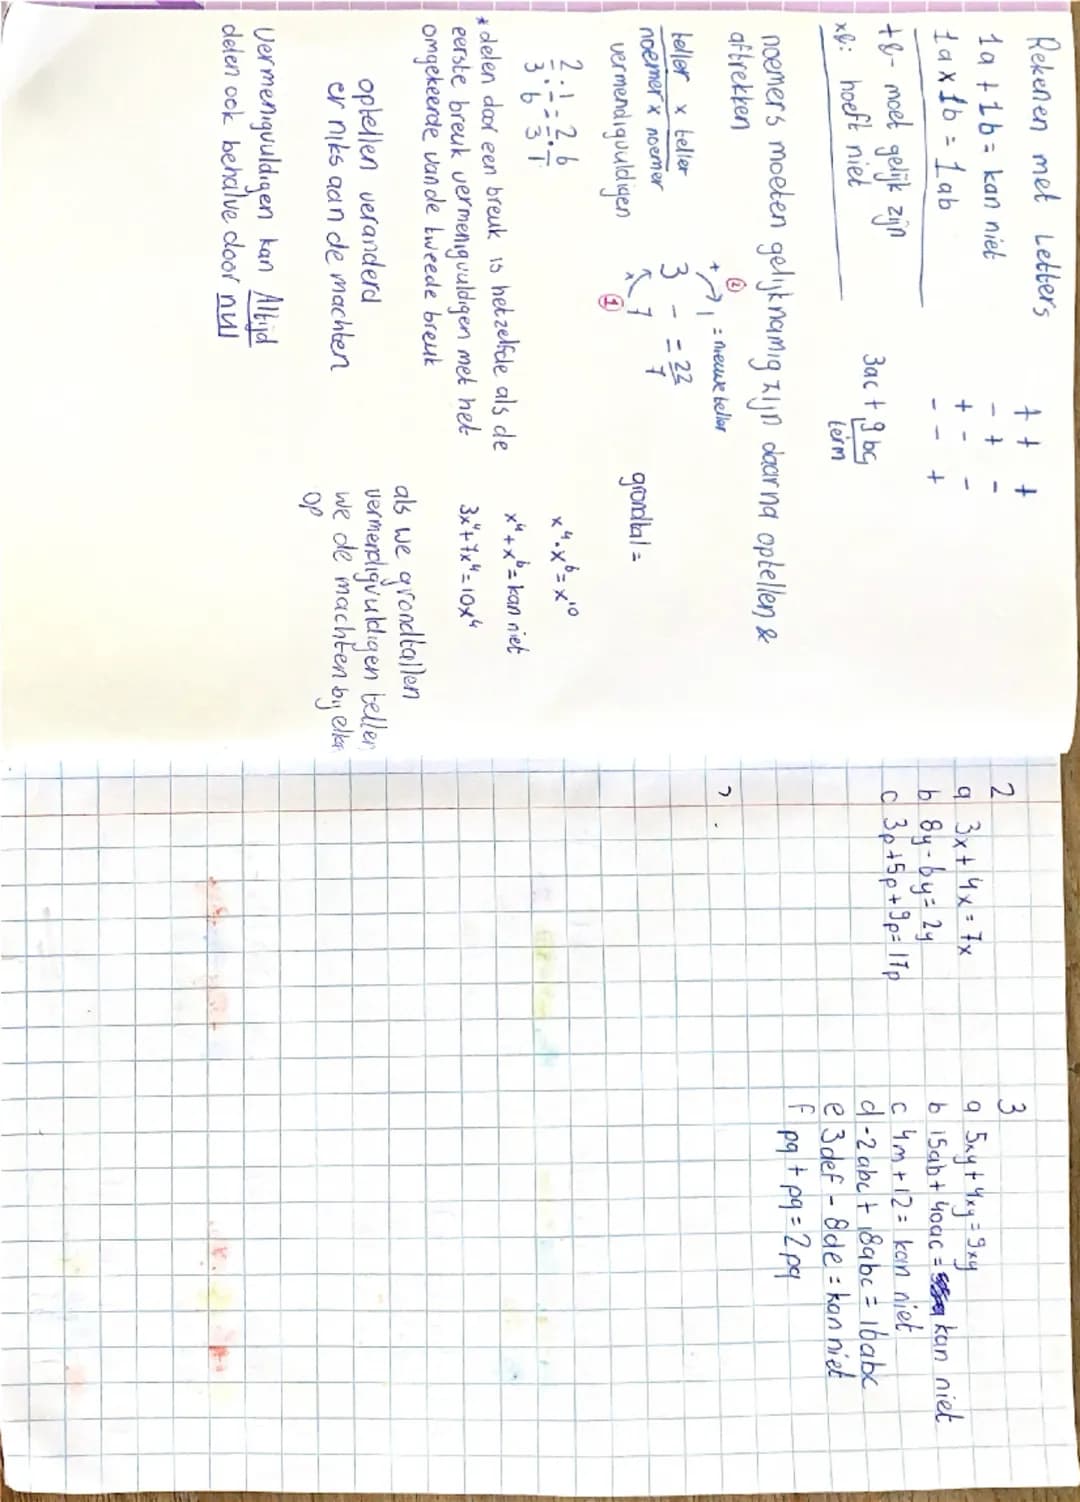 Rekenen met Letters
1a + 1b = kan niet
1a x 1b = 1ab
+ & - moet gelijk zijn
x&: hoeft niet
+ + +
- + -
+ - -
- - +
3ac + 9bc
term
noemers moeten gelijknamig zijn daarna optellen &
aftrekken
teller x teller
noemer x noemer
vermendigvuldigen
② + 1 = nieuwe teller
3 - = 22/7
x 7
①
grondtal =
2/3 : 1/6 = 2/3 · 6/1
x⁴ · x⁶ = x¹⁰
x⁴ + x⁶ = kan niet
3x⁴ + 7x⁴ = 10x⁴
* delen door een breuk is hetzelfde als de
eerste breuk vermenigvuldigen met het
omgekeerde van de tweede breuk
als we grondtallen
vermendigvuldigen tellen
we de machten bij elkr
op
optellen veranderd
er niks aan de machten
Vermenigvuldigen kan Altijd
delen ook behalve door nul
2
a 3x + 4x = 7x
b 8y - 6y = 2y
c 3p + 5p + 9p = 17p
3
a 5xy + 4xy = 9xy
b 15ab + 40ac = kan niet
c 4m + 12 = kan niet
d -2abc + 18abc = 16abc
e 3def - 8de = kan niet
f pq + pq = 2pq